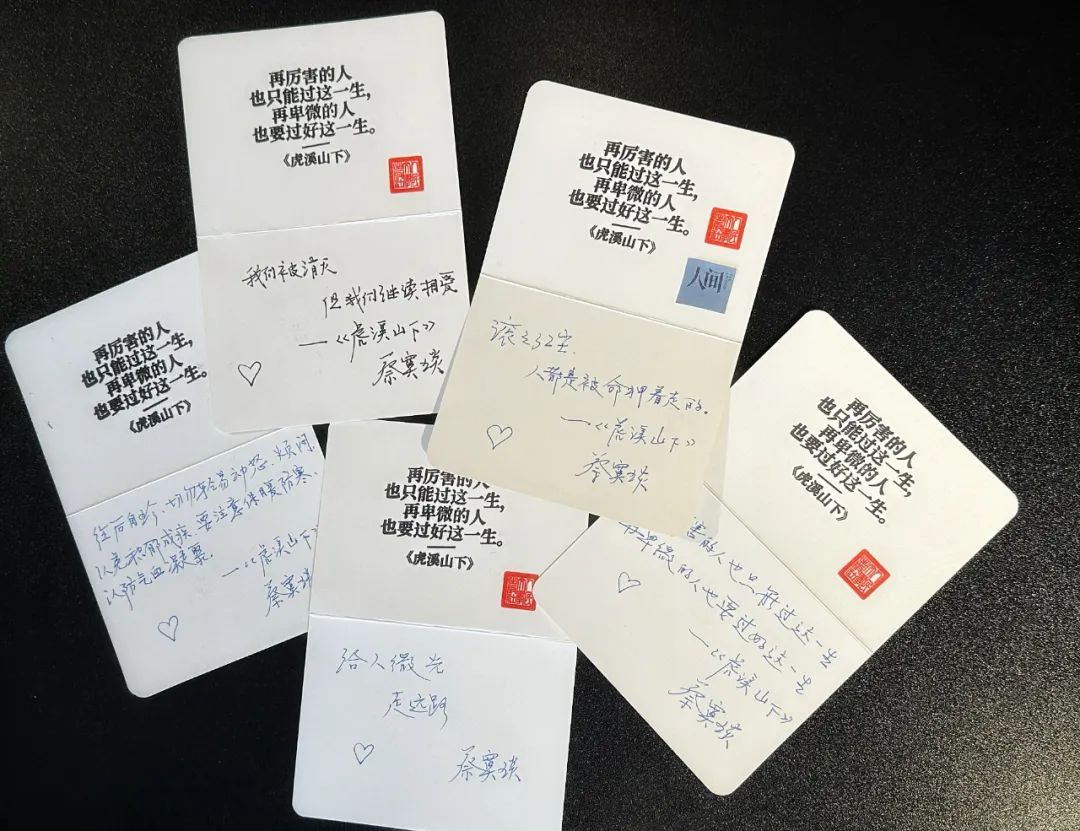 再厉害的人
也只能过这一生,
再卑微的人
也要过好这一生。
《虎溪山下》
我们被消灭
但我们继续相爱
—《虎溪山下》
蔡寞琰
再厉害的人
也只能过这一生,
再卑微的人
也要过好这一生。
《虎溪山下》
人间
滚滚红尘,
人都是被命押着走的。
—《虎溪山下》
蔡寞琰
再厉害的人
也只能过这一生,
再卑微的人
也要过好这一生。
《虎溪山下》
往后自珍、切勿轻易动怒、烦闷,
以免积郁成疾,要注意保暖防寒、
以防气血凝票。
—《虎溪山下》
蔡寞琰
再厉害的人
也只能过这一生,
再卑微的人
也要过好这一生。
《虎溪山下》
给人微光
走远路
蔡寞琰
再厉害的人
也只能过这一生,
再卑微的人
也要过好这一生。
《虎溪山下》
害的人也只能过这一生
再卑微的人也要过好这一生
—《虎溪山下》
蔡寞琰